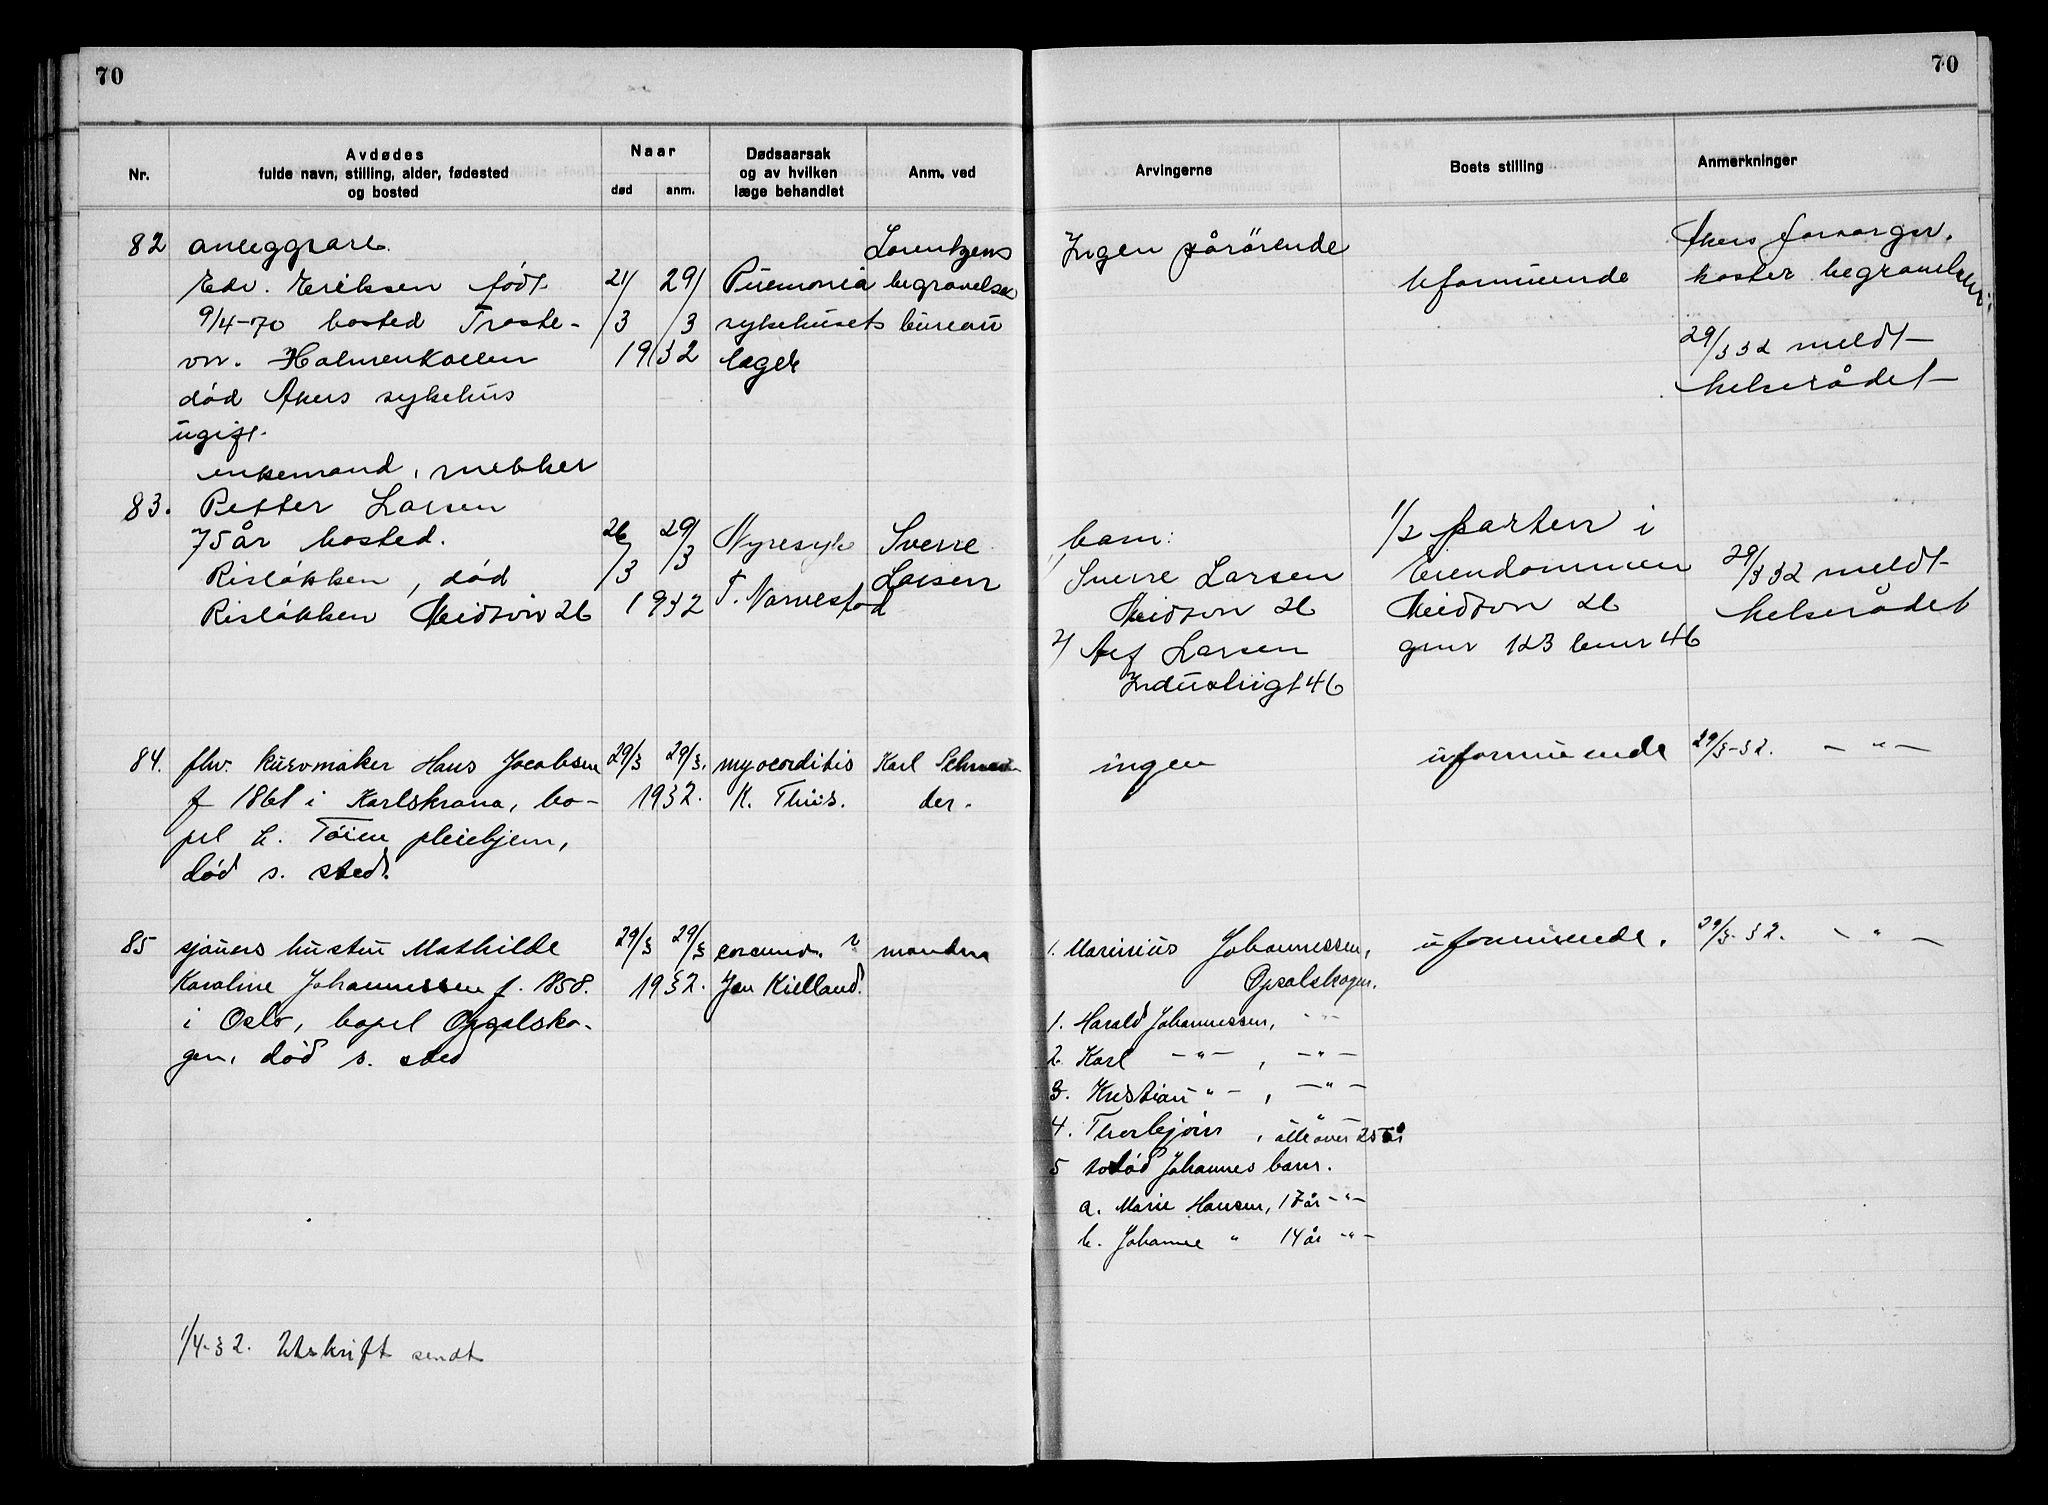 70
70
Nr.
Avdødes
fulde navn, stilling, alder, fødested
og bosted
Naar
død
anm.
Dødsaarsak
og av hvilken
læge behandlet
Anm. ved
Arvingerne
Boets stilling
Anmerkninger
82
Edv. Eriksen født
9/4-70 bosted Troste-
vn. Holmenkollen
død Akers sykehus
ugift.
21/3 29/3
1932
sykehusets
læge
Lorentzens
begravelses
bureau
Ingen pårörende
Uformuende
Akers forsorgsv.
koster begravelsen
29/3 32 meldt
helserådet
enkemand, snekker
83. Petter Larsen
75 år bosted.
Risløkken, død
Risløkken Neidsvn 26
26/3 29/3
1932
Nyresyk
T. Narvestad
Sverre
Larsen
barn:
1/ Sverre Larsen
Neidsvn 26
2/ Alf Larsen
Industrigt 46
1/2 parten i
Eiendommen
Neidsvn 26
gnr 123 bnr 46
29/3 32 meldt
helserådet
84. fhv. kurvmaker Hans Jacobsen
f 1861 i Karlskrona, bo-
pel h. Tøien pleiehjem,
død s. sted.
29/3 29/3.
1932.
myocorditis
K. Thiis.
Karl Schnei-
der.
ingen
uformuende
29/3-32. — " —
85 sjauers hustru Mathilde
Karoline Johannessen f. 1858.
i Oslo, bopel Opsalsko-
gen, død s. sted
29/3 29/3
1932.
Jan Kielland.
manden
1. Marinius Johannessen,
Opsalskogen.
1. Harald Johannessen, - " -
2. Karl — " — , — " —
3. Kristian " — , — " —
4. Thorbjørn , alle over 25 år
5 avdød Johannes barn.
a. Marie Hansen, 17 år - " -
b. Johanne " 14 år - " -
uformuende.
29/3-32. - " -
1/4-32. Utskrift sendt